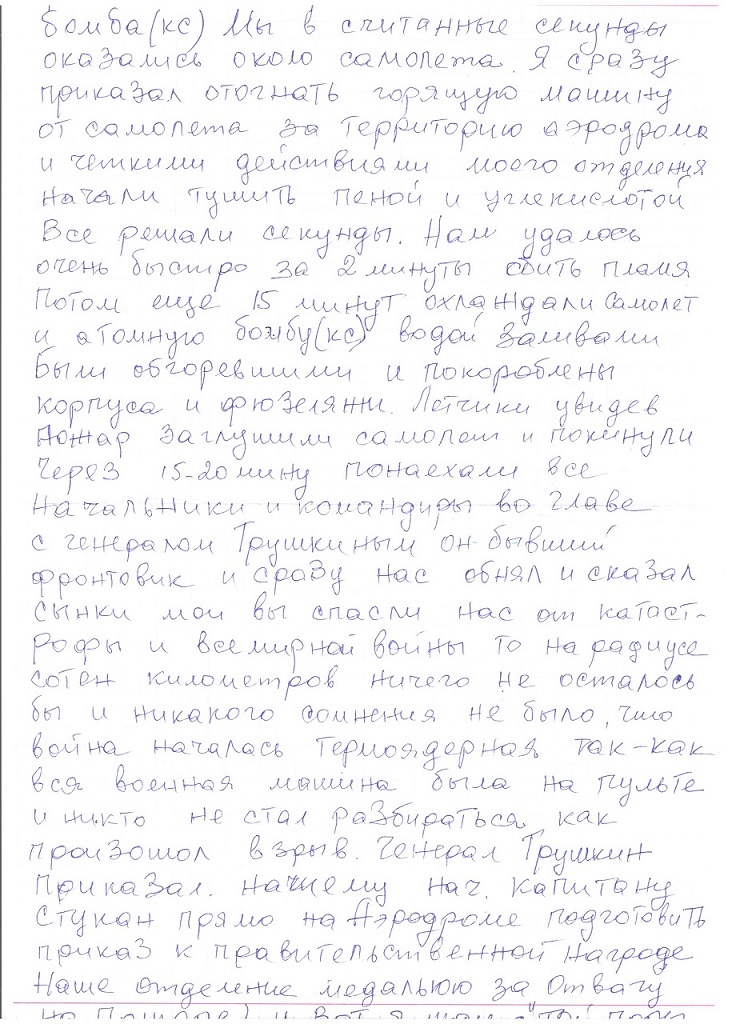 бомба(кс) Мы в считанные секунды
оказались около самолета. Я сразу
приказал отогнать горящую машину
от самолета за территорию аэродрома
и четкими действиями моего отделения
начали тушить пеной и углекислотой
Все решали секунды. Нам удалось
очень быстро за 2 минуты сбить пламя
Потом еще 15 минут охлаждали самолет
и атомную бомбу(кс) водой заливали
Были обгоревшими и покороблены
корпуса и фюзеляжи. Летчики увидев
пожар заглушили самолет и покинули
Через 15-20 мину понаехали все
начальники и командиры во главе
с генералом Трушкиным он бывший
фронтовик и сразу нас обнял и сказал
сынки мои вы спасли нас от катаст-
рофы и всемирной войны то на радиусе
сотен километров ничего не осталось
бы и никакого сомнения не было, что
война началась термоядерная так-как
вся военная машина была на пульте
и никто не стал разбираться как
произошол взрыв. Генерал Трушкин
приказал. начнему нач. капитану
Стукан прямо на Аэродроме подготовить
приказ к правительственной награде
Наше отделение медалью за Отвагу